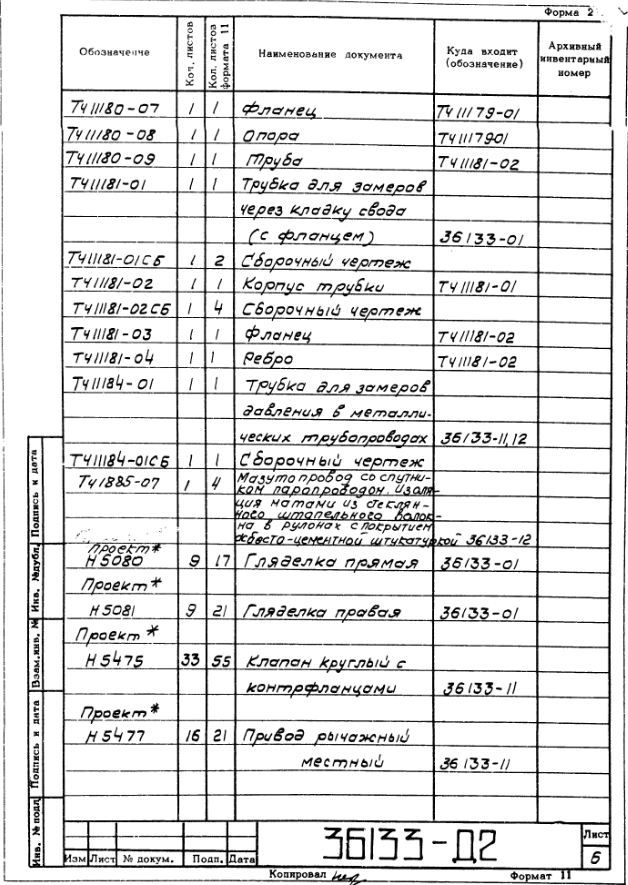 Форма 2
Обозначение
Кол. листов
Кол. листов формата 11
Наименование документа
Куда входит (обозначение)
Архивный инвентарный номер
Т411180-07 1 1 Фланец Т411179-01
Т411180-08 1 1 Опора Т41117901
Т411180-09 1 1 Труба Т411181-02
Т411181-01 1 1 Трубка для замеров
через кладку свода
(с фланцем) 36133-01
Т411181-01СБ 1 2 Сборочный чертеж
Т411181-02 1 1 Корпус трубки Т411181-01
Т411181-02СБ 1 4 Сборочный чертеж
Т411181-03 1 1 Фланец Т411181-02
Т411181-04 1 1 Ребро Т411181-02
Т411184-01 1 1 Трубка для замеров
давления в металли-
ческих трубопроводах 36133-11,12
Т411184-01СБ 1 1 Сборочный чертеж
Т41885-07 1 4 Мазутопровод со спутни-
ком паропроводом. Изоля-
ция матами из стеклян-
ного штапельного волок-
на в рулонах с покрытием
асбесто-цементной штукатуркой 36133-12
Проект*
Н5080 9 17 Гляделка прямая 36133-01
Проект*
Н5081 9 21 Гляделка правая 36133-01
Проект*
Н5475 33 55 Клапан круглый с
контрфланцами 36133-11
Проект*
Н5477 16 21 Привод рычажный
местный 36133-11
Инв. № подл. Подпись и дата Взам.инв. № Инв. №дубл. Подпись и дата
36133-Д2
Лист
6
Изм Лист № докум. Подп. Дата
Копировал
Формат 11